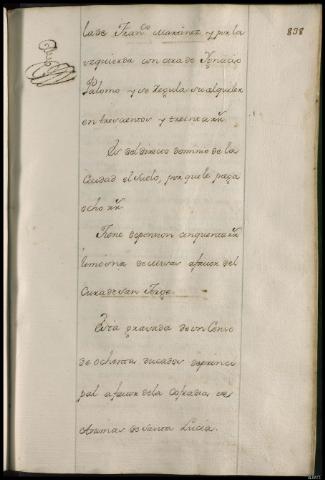 838
la de Fran.co Martinez y por la
izquierda con casa de Ygnacio
Palomo y se Regula su alquiler
en trescientos y treinta rr.s
Es del directo dominio de la
Ciudad el suelo, por que le paga
ocho rr.s
Tiene de pension cinquenta rr.s
limosna de misas a favor del
Cura de San Jorge.
Esta gravada de un Censo
de ochenta ducados de princi
pal a favor de la Cofradia de
Animas de Santa Lucia.